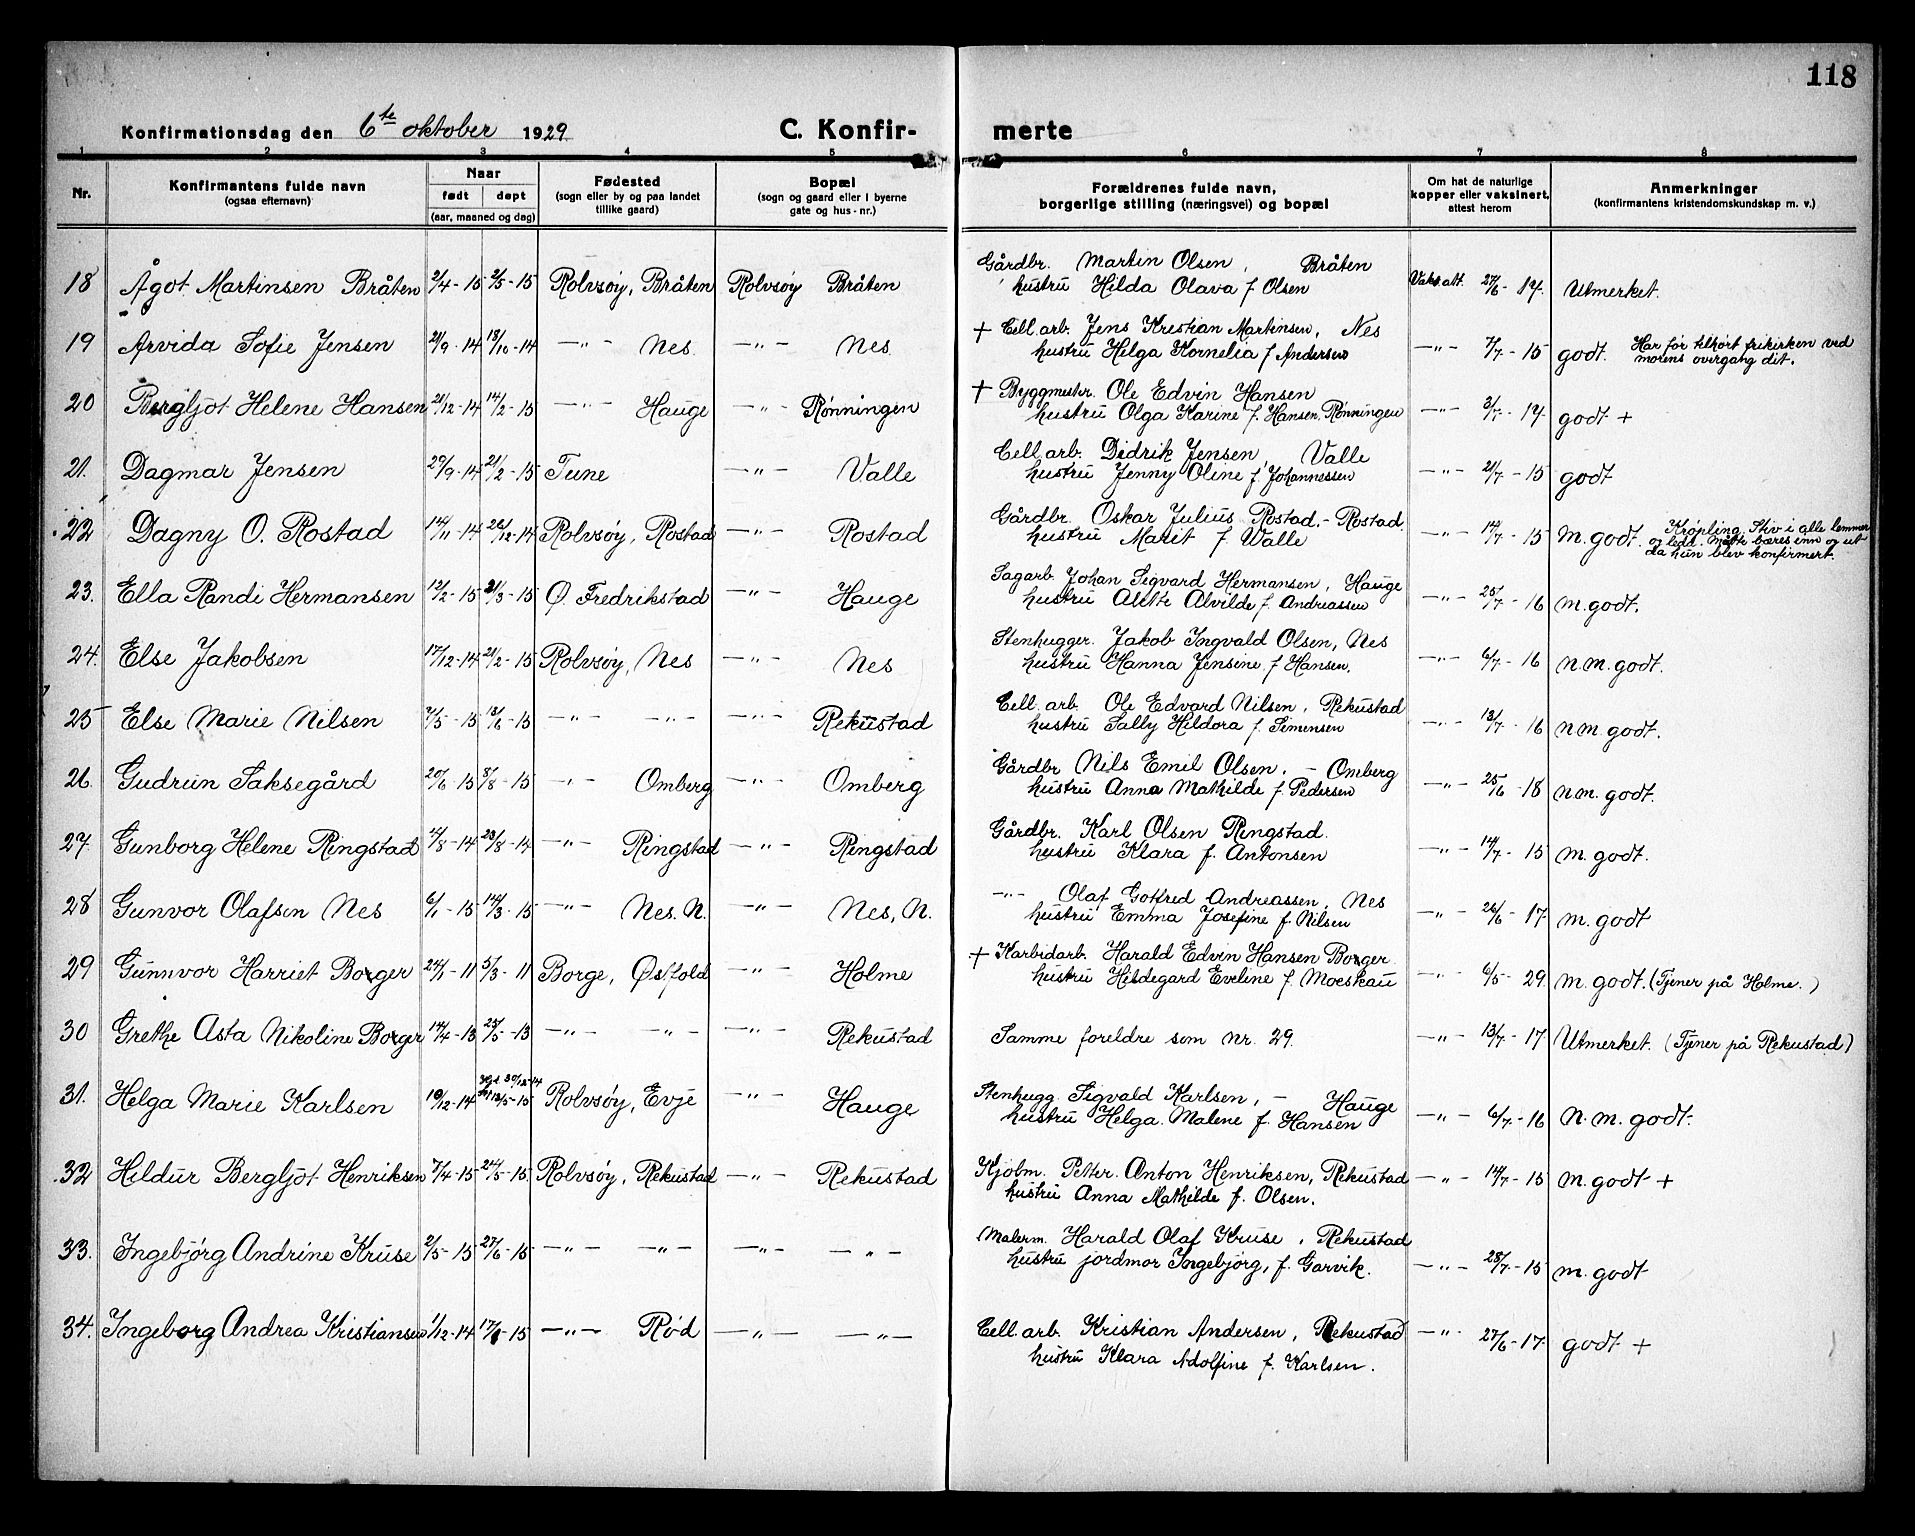 118
Konfirmationsdag den 6te oktober 1929 C. Konfirmerte
1 2 3 4 5 6 7 8
Nr. Konfirmantens fulde navn (ogsaa efternavn) Naar født døpt (aar, maaned og dag) Fødested (sogn eller by og paa landet tillike gaard) Bopæl (sogn og gaard eller i byerne gate og hus-nr.) Forældrenes fulde navn, borgerlige stilling (næringsvei) og bopæl Om hat de naturlige kopper eller vaksinert, attest herom Anmerkninger (konfirmantens kristendomskundskap m. v.)
Gårdbr. Martin Olsen, Bråten
18 Ågot Martinsen Bråten 2/4-15 2/5-15 Rolvsøy, Bråten Rolvsøy Bråten hustru Hilda Olava f. Olsen Vaks.att. 27/6-17. Utmerket.
+ Cell.arb. Jens Kristian Martinsen, Nes
19 Arvida Sofie Jensen 21/9-14 18/10-14 —"— Nes. —"— Nes. hustru Helga Kornelia f. Andersen —"— 7/7-15 godt. Har før tilhørt frikirken ved
morens overgang dit.
+ Byggmestr. Ole Edvin Hansen
20 Bergljot Helene Hansen 21/12-14 14/2-15 —"— Hauge —"— Rønningen hustru Olga Karine f. Hansen, Rønningen —"— 3/7-17. godt +
Cell.arb. Didrik Jensen, Valle
21. Dagmar Jensen 29/9-14 21/2-15 Tune —"— Valle hustru Jenny Oline f. Johannessen —"— 21/7-15 godt
Gårdbr. Oskar Julius Rostad.- Rostad.
22 Dagny O. Rostad 14/11-14 26/12-14 Rolvsøy, Rostad —"— Rostad hustru Marit f. Walle —"— 14/7-15 m. godt. Krøpling. Stiv i alle lemmer
og ledd. Måtte bæres inn og ut
da hun blev konfirmert.
Sagarb. Johan Sigvard Hermansen, Hauge
23. Ella Randi Hermansen 12/2-15 21/3-15 Ø. Fredrikstad —"— Hauge hustru Alette Alvilde f. Andreassen —"— 25/7-16 m. godt.
Stenhugger. Jakob Ingvald Olsen, Nes
24. Else Jakobsen 17/12-14 21/2-15 Rolvsøy, Nes —"— Nes hustru Hanna Jensine f. Hansen. —"— 6/7-16 n.m. godt.
Cell. arb. Ole Edvard Nilsen, Rekustad
25 Else Marie Nilsen 7/5-15 13/6-15 —"— —"— —"— Rekustad hustru Sally Hildora f. Simensen —"— 13/7-16 n.m. godt.
Gårdbr. Nils Emil Olsen. - Omberg
26. Gudrun Saksegård 20/6-15 8/8-15 —"— Omberg —"— Omberg hustru Anna Mathilde f. Pedersen —"— 25/6-18 n.m. godt.
Gårdbr. Karl Olsen Ringstad.
27. Gunborg Helene Ringstad 14/8-14 23/8-14 —"— Ringstad —"— Ringstad hustru Klara f. Antonsen —"— 14/7-15 m. godt.
—"— Olaf Gotfred Andreassen, Nes
28 Gunvor Olafsen Nes 6/1-15 14/3-15 —"— Nes. N. —"— Nes, N. hustru Emma Josefine f. Nilsen —"— 26/6-17. m. godt
+ Karbidarb. Harald Edvin Hansen Borger.
29 Gunnvor Harriet Borger 24/1-11 5/3-11 Borge, Østfold —"— Holme hustru Hildegard Eveline f. Moeskau —"— 6/5-29. m. godt. (Tjener på Holme.)
30 Grethe Asta Nikoline Borger 14/4-13 25/5-13 —"— —"— —"— Rekustad Samme foreldre som nr. 29. —"— 13/7-17 Utmerket. (Tjener på Rekustad)
Stenhugg. Sigvald Karlsen, - Hauge
31. Helga Marie Karlsen 10/12-14 30/12-14 13/5-15 Rolvsøy, Evje —"— Hauge hustru Helga Malene f. Hansen —"— 6/7-16 n.m. godt.
Kjøbm. Petter Anton Henriksen, Rekustad
32 Hildur Bergljot Henriksen 7/4-15 24/5-15 Rolvsøy, Rekustad —"— Rekustad hustru Anna Mathilde f. Olsen. —"— 14/7-15 m. godt +
Malerm. Harald Olaf Kruse, Rekustad
33. Ingebjørg Andrine Kruse 2/5-15 27/6-15 —"— —"— —"— —"— hustru jordmor Ingebjørg, f. Garvik. —"— 28/7-15 m. godt
Cell.arb. Kristian Andersen, Rekustad
34. Ingeborg Andrea Kristiansen 1/12-14 —"— Rød —"— —"— hustru Klara Adolfine f. Karlsen. —"— 27/6-17. godt +